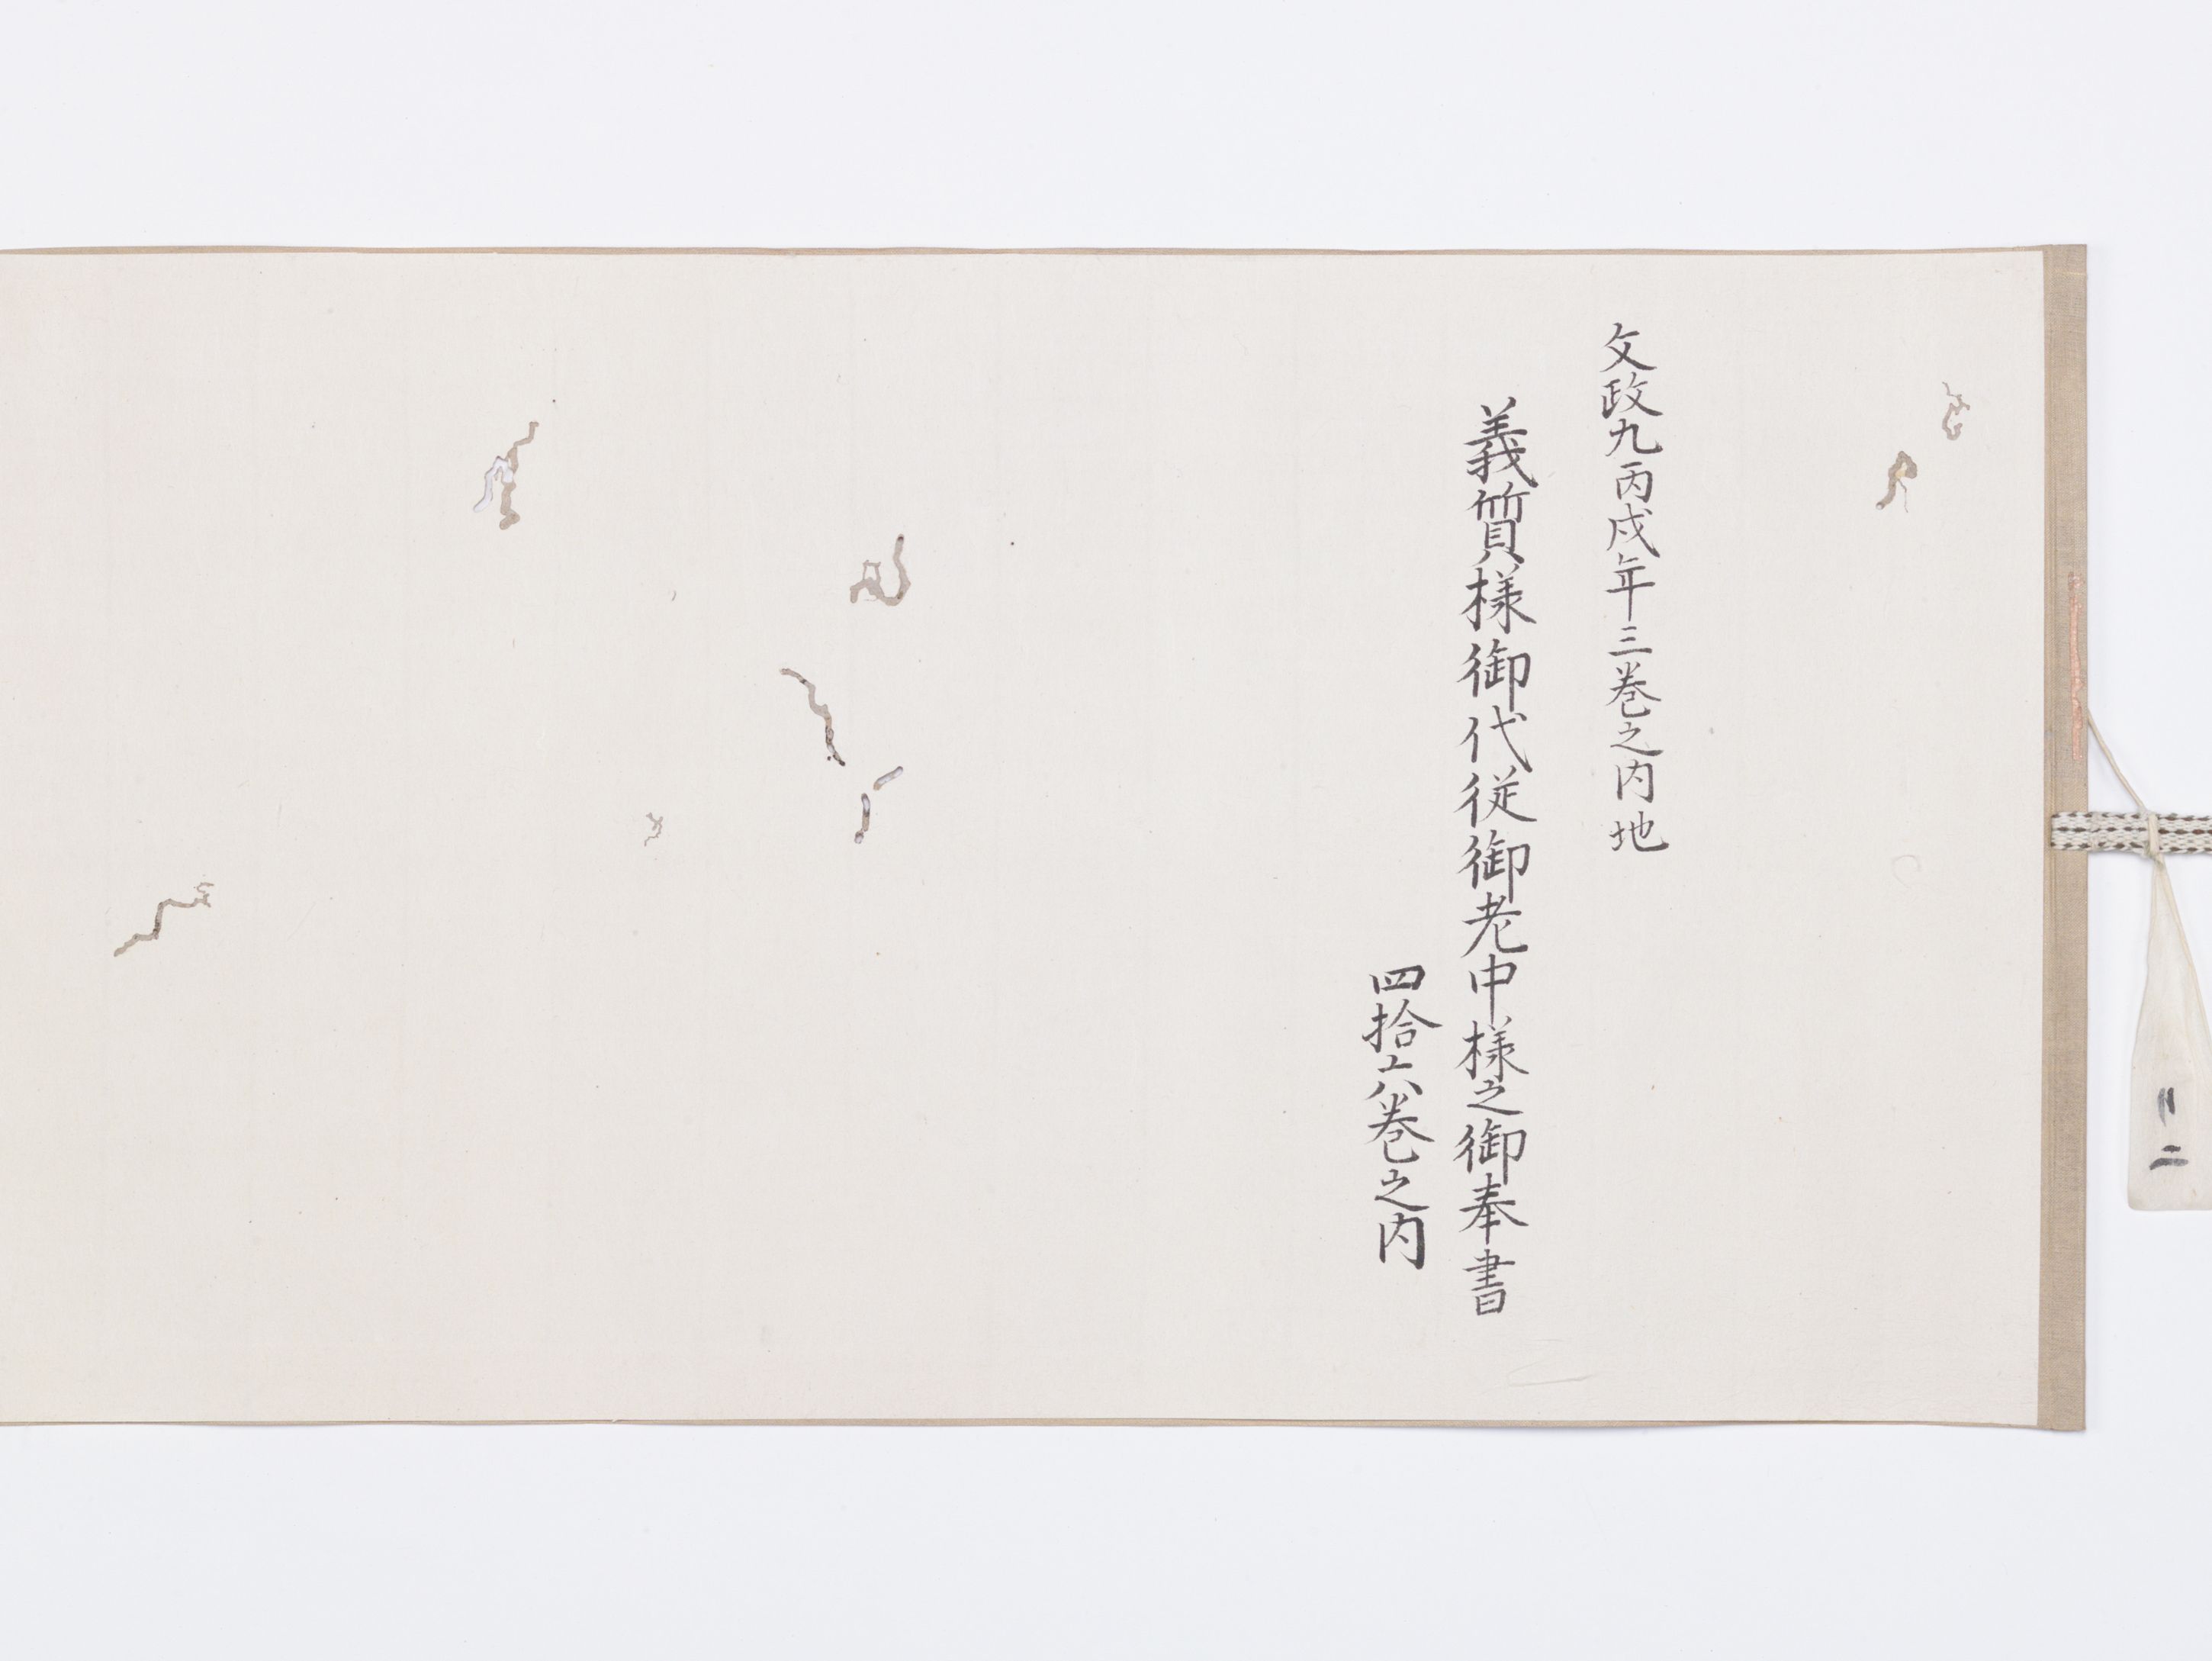 文政九丙戌年三巻之内地
義質様御代従御老中様之御奉書
四拾六巻之内